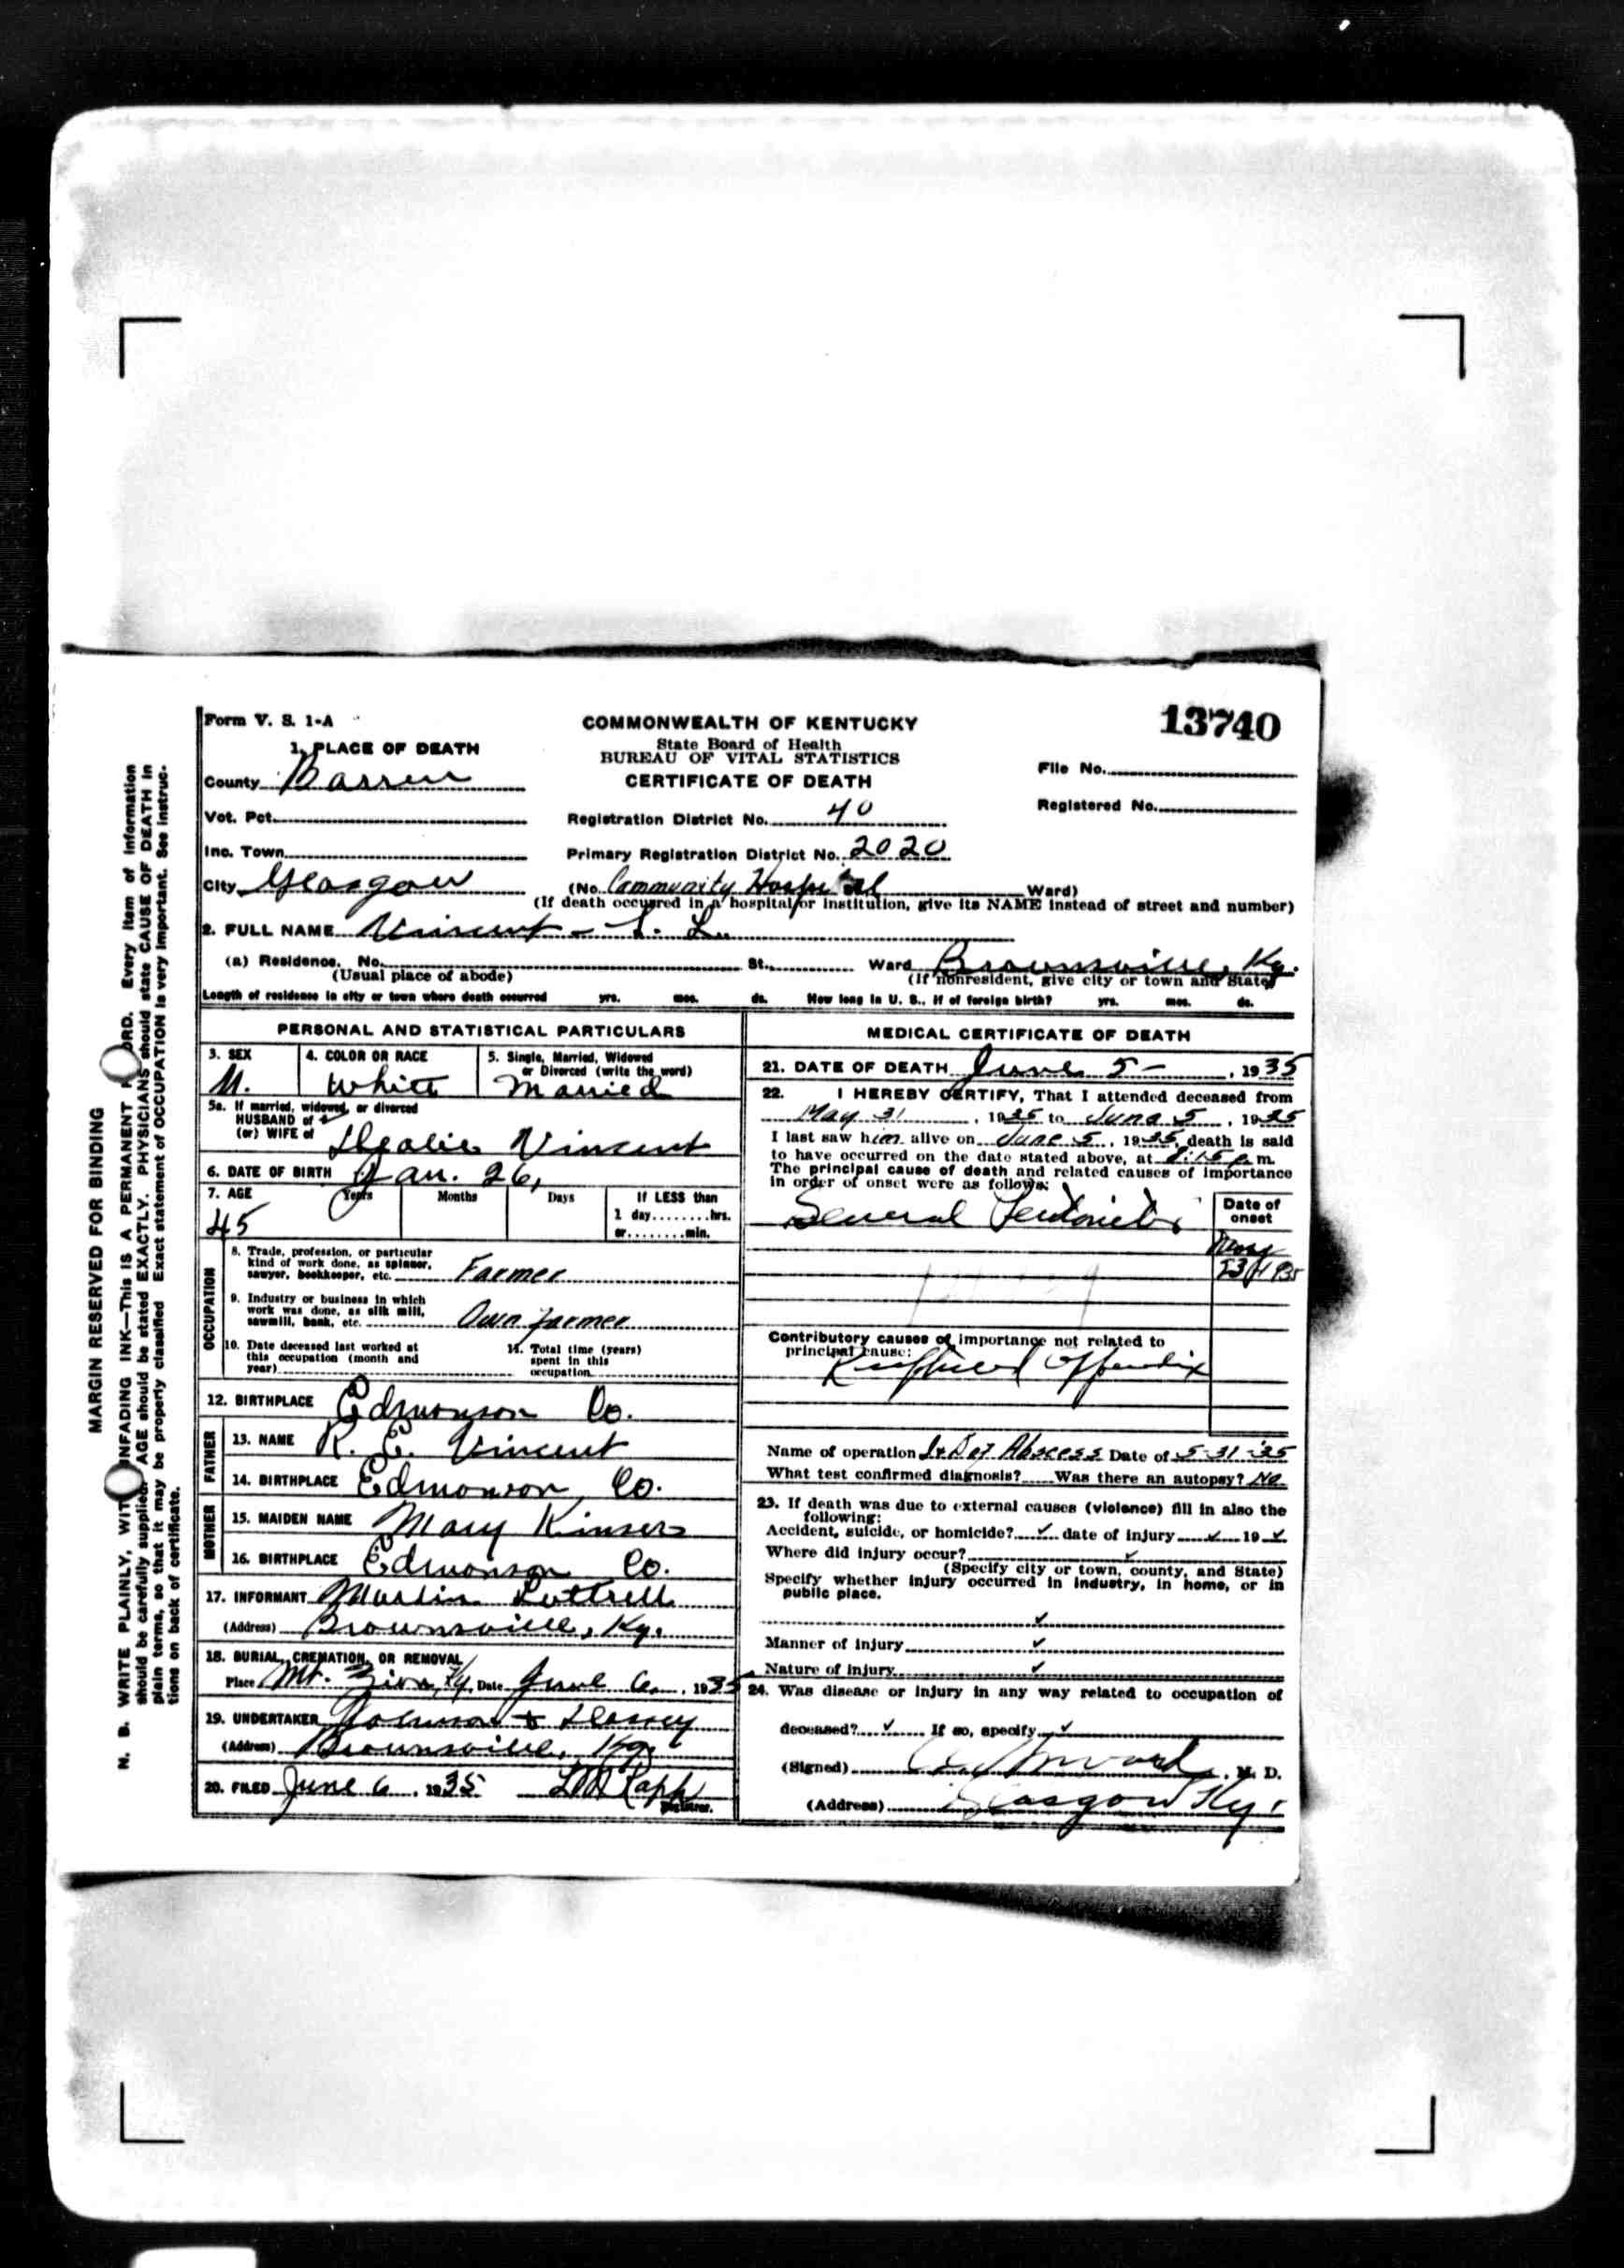 MARGIN RESERVED FOR BINDING
N. B. WRITE PLAINLY, WIT UNFADING INK—THIS IS A PERMANENT ORD. Every item of information
should be carefully supplied. AGE should be stated EXACTLY. PHYSICIANS should state CAUSE OF DEATH in
plain terms, so that it may be properly classified. Exact statement of OCCUPATION is very important. See instruc-
tions on back of certificate.
Form V. S. 1-A
COMMONWEALTH OF KENTUCKY
State Board of Health
BUREAU OF VITAL STATISTICS
CERTIFICATE OF DEATH
13740
File No.
Registered No.
1. PLACE OF DEATH
County Barren
Vot. Pct.
Registration District No. 40
Inc. Town
Primary Registration District No. 2020
City Glasgow (No. Community Hospital Ward)
(If death occurred in a hospital or institution, give its NAME instead of street and number)
2. FULL NAME Vincent - L.
(a) Residence. No. St., Ward Brownsville, Ky.
(Usual place of abode) (If nonresident, give city or town and State)
Length of residence in city or town where death occurred yrs. mos. ds. How long in U. S., if of foreign birth? yrs. mos. ds.
PERSONAL AND STATISTICAL PARTICULARS
3. SEX M.
4. COLOR OR RACE White
5. Single, Married, Widowed
or Divorced (write the word)
Married
5a. If married, widowed, or divorced
HUSBAND of
(or) WIFE of Vincent
6. DATE OF BIRTH Jan. 26,
7. AGE Years Months Days If LESS than
1 day hrs.
or min.
45
OCCUPATION
8. Trade, profession, or particular
kind of work done, as spinner,
sawyer, bookkeeper, etc. Farmer
9. Industry or business in which
work was done, as silk mill,
sawmill, bank, etc. Own farmer
10. Date deceased last worked at
this occupation (month and
year)
11. Total time (years)
spent in this
occupation
12. BIRTHPLACE Edmonson Co.
FATHER
13. NAME R. E. Vincent
14. BIRTHPLACE Edmonson Co.
MOTHER
15. MAIDEN NAME Mary Kinser
16. BIRTHPLACE Edmonson Co.
17. INFORMANT Luttrell
(Address) Brownsville, Ky.
18. BURIAL, CREMATION, OR REMOVAL
Place Mt. Zion, Ky. Date June 6, 1935
19. UNDERTAKER Johnson &
(Address) Brownsville, Ky.
20. FILED June 6, 1935 Rapp
Registrar.
MEDICAL CERTIFICATE OF DEATH
21. DATE OF DEATH June 5 - , 1935
22. I HEREBY CERTIFY, That I attended deceased from
May 31, 1935 to June 5, 1935
I last saw him alive on June 5, 1935, death is said
to have occurred on the date stated above, at 8:15 p. m.
The principal cause of death and related causes of importance
in order of onset were as follows:
Date of
onset
General Peritonitis
May
23 1935
Contributory causes of importance not related to
principal cause:
Ruptured Appendix
Name of operation I & D of Abscess Date of 5-31-35
What test confirmed diagnosis? Was there an autopsy? No.
23. If death was due to external causes (violence) fill in also the
following:
Accident, suicide, or homicide? ✓ date of injury ✓ 19 ✓
Where did injury occur? ✓
(Specify city or town, county, and State)
Specify whether injury occurred in industry, in home, or in
public place.
✓
Manner of injury ✓
Nature of injury ✓
24. Was disease or injury in any way related to occupation of
deceased? ✓ If so, specify ✓
(Signed) , M. D.
(Address) Glasgow Ky.